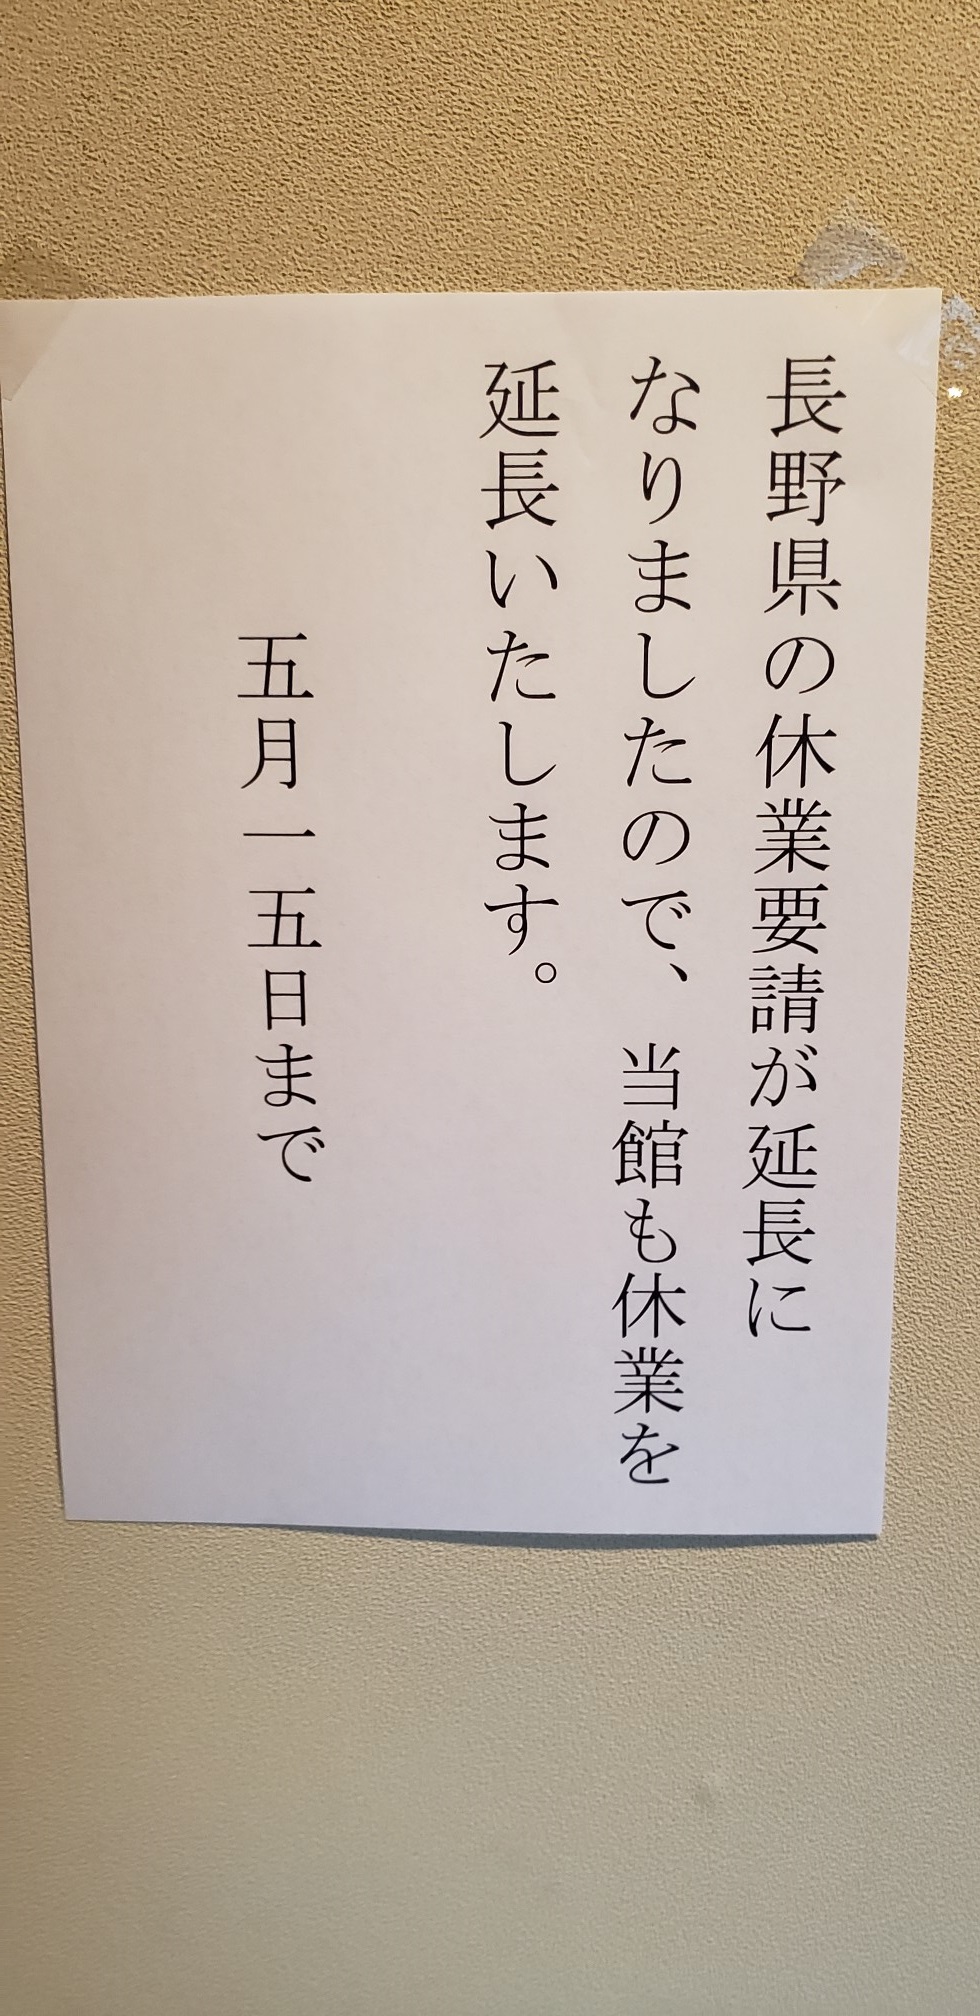 長野県の休業要請が延長に
なりましたので、当館も休業を
延長いたします。
五月一五日まで